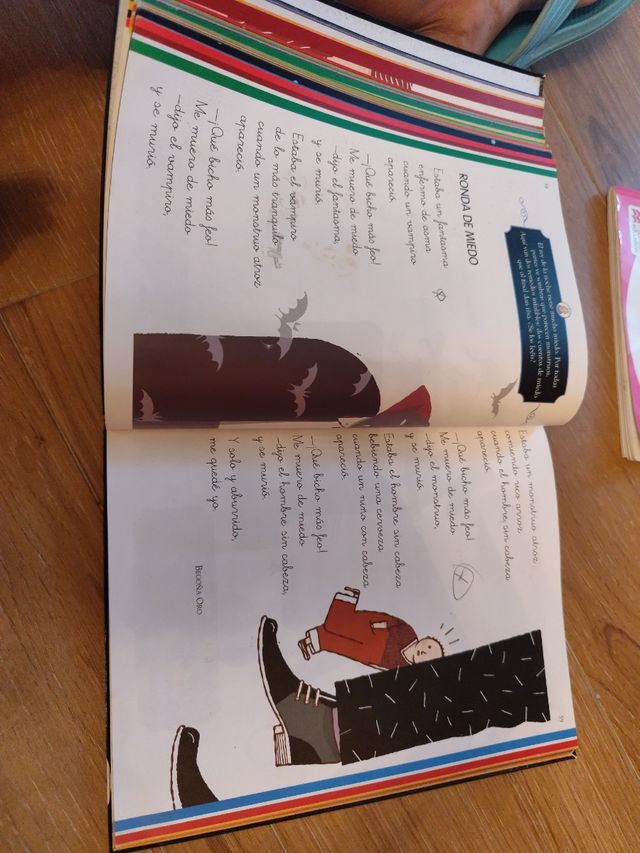 El rey de la noche tiene mucho miedo. Por todas
partes ve sombras que parecen monstruos.
Aquí van dos remedios infalibles: dos cuentos de miedo
que al final dan risa. ¿Se los leéis?
RONDA DE MIEDO
Estaba un fantasma
enfermo de asma
cuando un vampiro
apareció.
—¡Qué bicho más feo!
Me muero de miedo
—dijo el fantasma,
y se murió.
Estaba el vampiro
de lo más tranquilo
cuando un monstruo atroz
apareció.
—¡Qué bicho más feo!
Me muero de miedo
—dijo el vampiro,
y se murió.
Estaba un monstruo atroz
comiendo rico arroz
cuando el hombre sin cabeza
apareció.
—¡Qué bicho más feo!
Me muero de miedo
—dijo el monstruo,
y se murió.
Estaba el hombre sin cabeza
bebiendo una cerveza
cuando un niño con cabeza
apareció.
—¡Qué bicho más feo!
Me muero de miedo
—dijo el hombre sin cabeza,
y se murió.
Y solo y aburrido,
me quedé yo.
BEGOÑA ORO